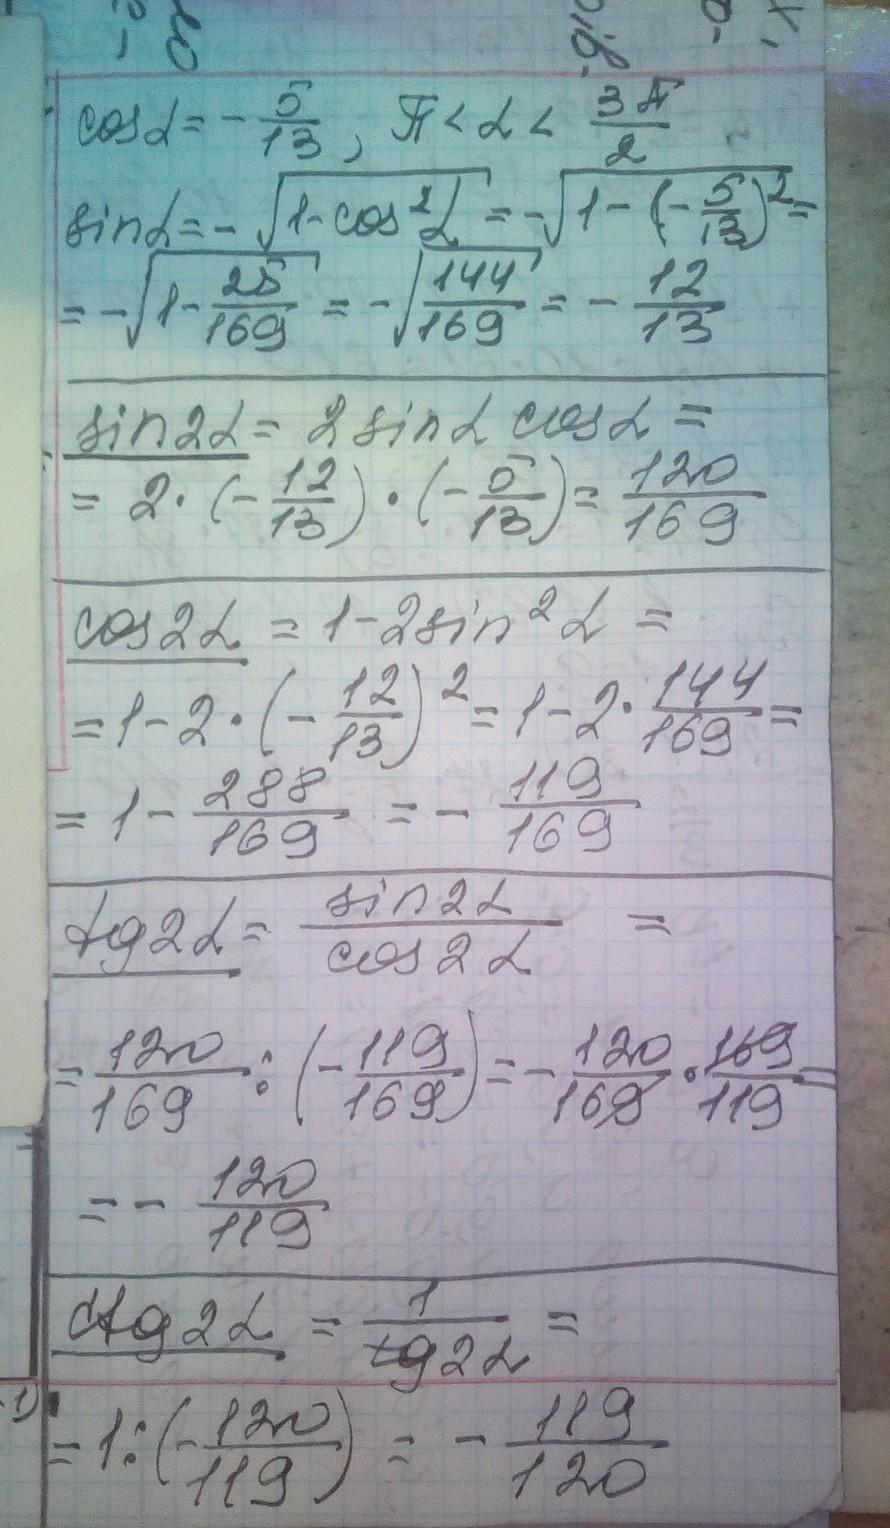 cosα = -5/13, π < α < 3π/2
sinα = -√(1-cos²α) = -√(1-(-5/13)²) =
= -√(1-25/169) = -√(144/169) = -12/13
sin2α = 2sinα cosα =
= 2·(-12/13)·(-5/13) = 120/169
cos2α = 1-2sin²α =
= 1-2·(-12/13)² = 1-2·144/169 =
= 1-288/169 = -119/169
tg2α = sin2α/cos2α =
= 120/169 : (-119/169) = -120/169 · 169/119 =
= -120/119
ctg2α = 1/tg2α =
= 1:(-120/119) = -119/120